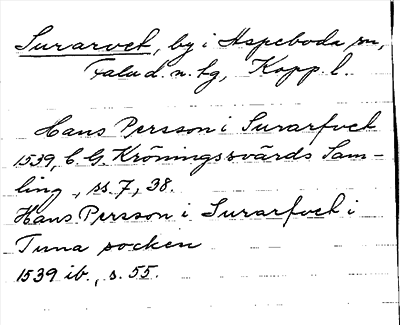 Surarvet, by i Aspeboda sn,
Falu d. n. tg, Kopp. l.
Hans Persson i Surarfvet
1539, C. G. Kröningsvärds Sam-
ling, ss. 7, 38.
Hans Persson i Surarfvet i
Tuna socken
1539 ib., s. 55.